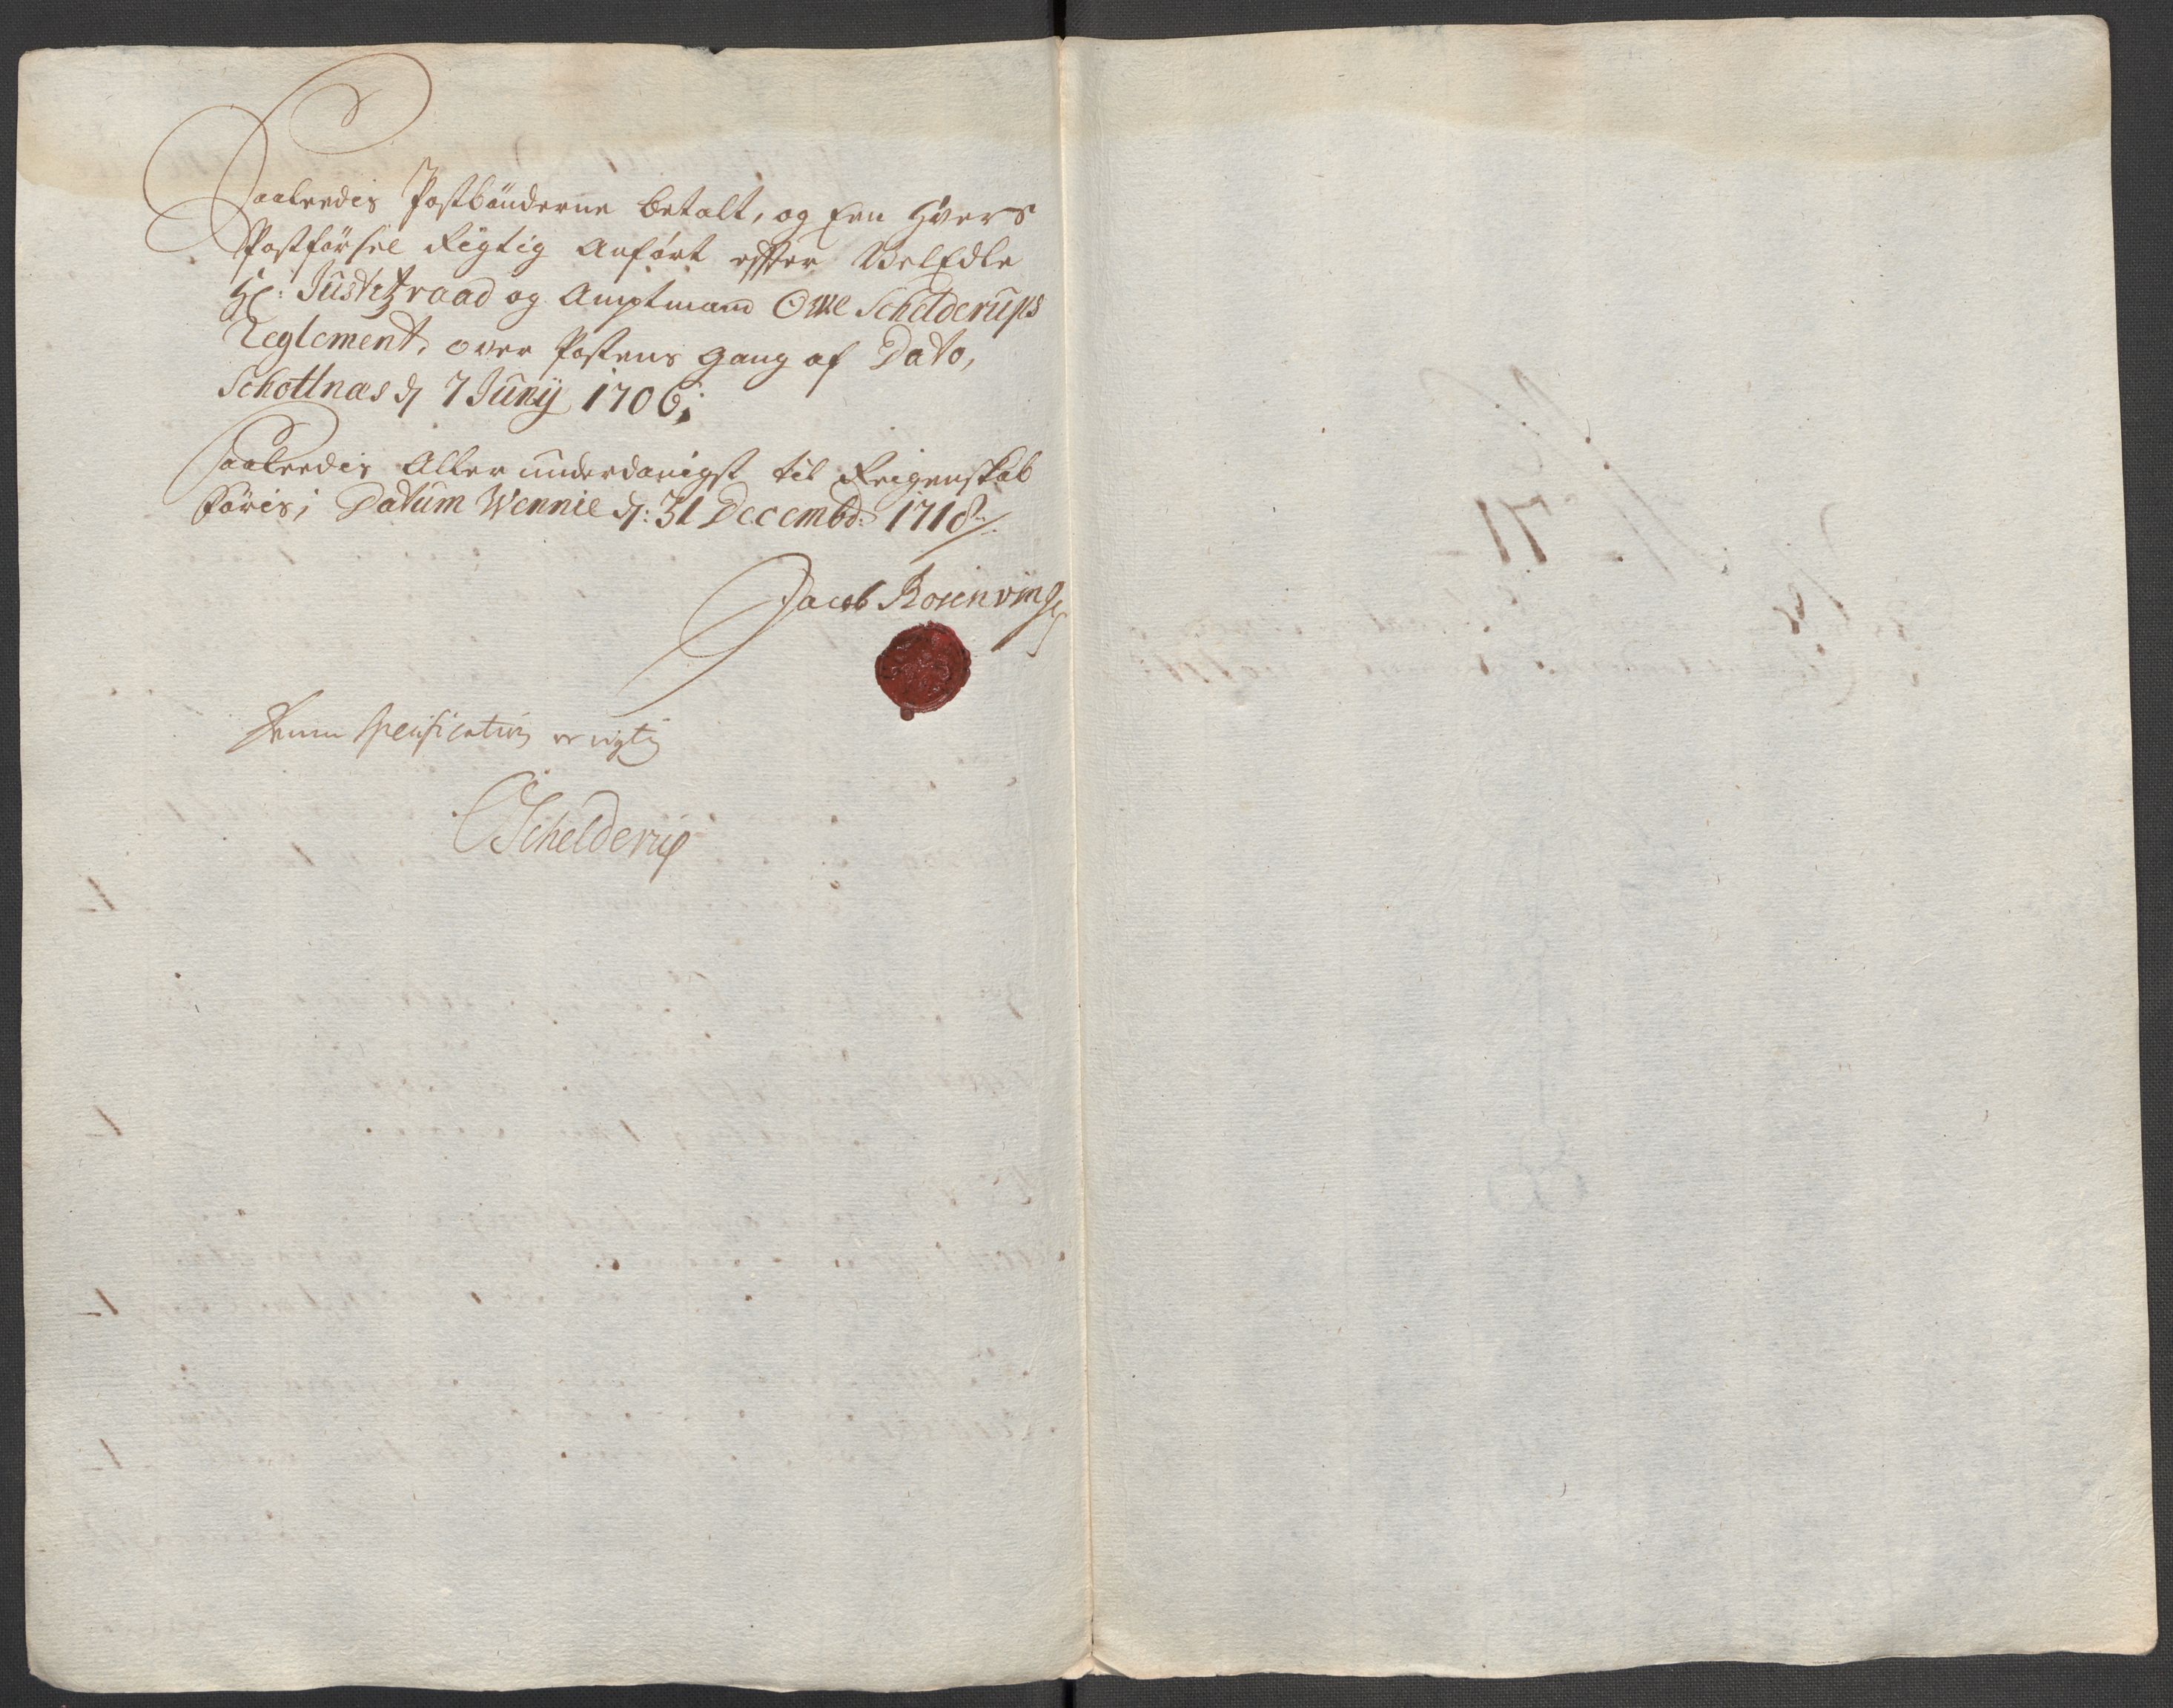 Saaleedis Postbönderne betalt, og Een Hvers
Postförsel Rigtig Anfört effter VelEdle
Hr: Justitzraad og Amptmand Owe Schelderups
Reglement, over Postens gang af Dato,
Schottnæs d 7 Junij 1706;
Saaleedis Aller underdanigst til Reigenskab
föris; Datum Wennie d: 31 Decembr: 1718
Jacob Rosenvinge
Denne Specification er rigtig
OSchelderup